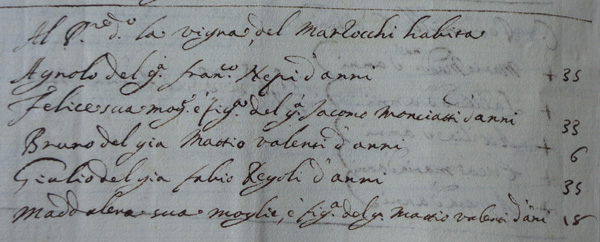 Al P.re d.o la vigna del Martocchi habita
Agnolo del q.m fran.co Nepi d'anni + 35
Felice sua mog.e è fig.a del q.m Jacomo Monciatti d'anni 33
Bruno del gia Mattio valenti d'anni 6
Giulio del gia fabio Regoli d'anni 35
Maddalena sua moglie, è fig.a del q. Mattio valenti d'ani + 18